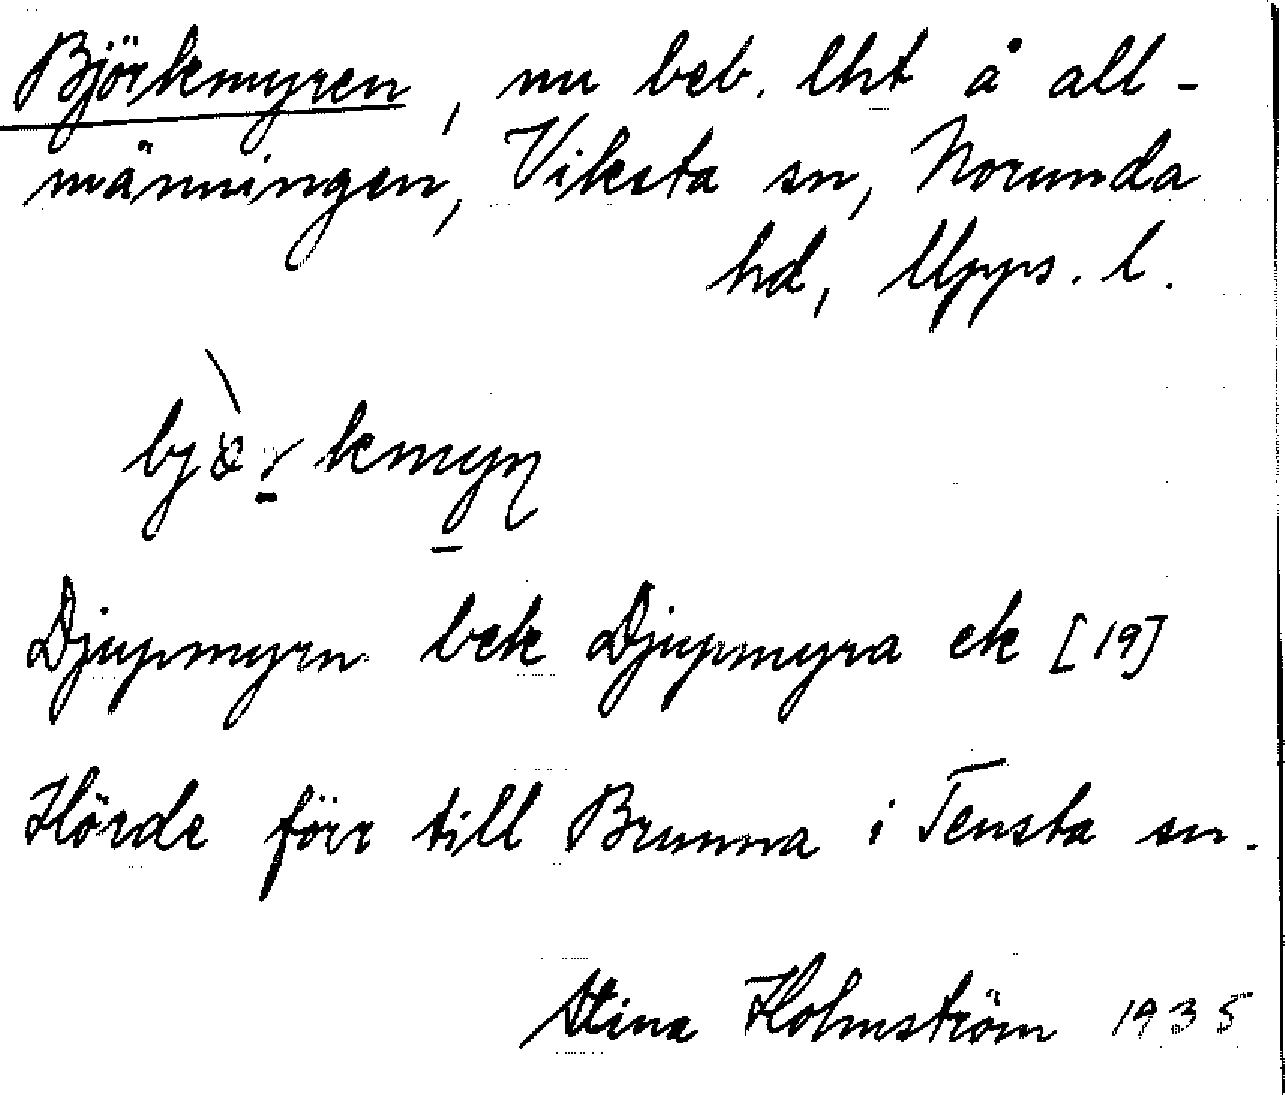 Björkmyren, nu beb. lht å all-
männingen, Viksta sn, Norunda
hd, Upps. l.
bjö̀rkmyn
Djupmyrn bek Djupmyra ek [19]
Hörde förr till Brunna i Tensta sn.
Stina Holmström 1935